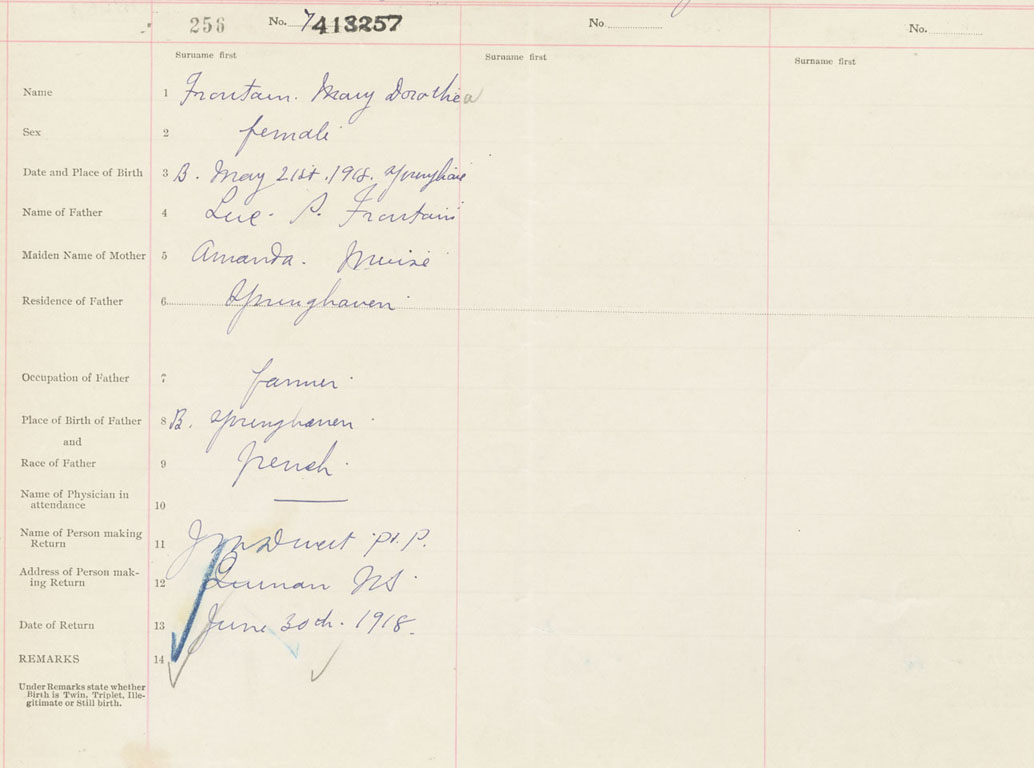 256 No. 7 413257 No No.
Surname first Surname first Surname first
Name 1 Frontain. Mary Dorothea
Sex 2 female
Date and Place of Birth 3 B. May 21st. 1918. Springhave
Name of Father 4 Luc. P. Frontain
Maiden Name of Mother 5 Amanda. Muise
Residence of Father 6 Springhaven
Occupation of Father 7 farmer.
Place of Birth of Father 8 B. Springhaven
and
Race of Father 9 french.
Name of Physician in
attendance 10
Name of Person making
Return 11 P. P.
Address of Person mak-
ing Return 12 Quinan NS.
Date of Return 13 June 30th. 1918.
REMARKS 14
Under Remarks state whether
Birth is Twin, Triplet, Ille-
gitimate or Still birth.